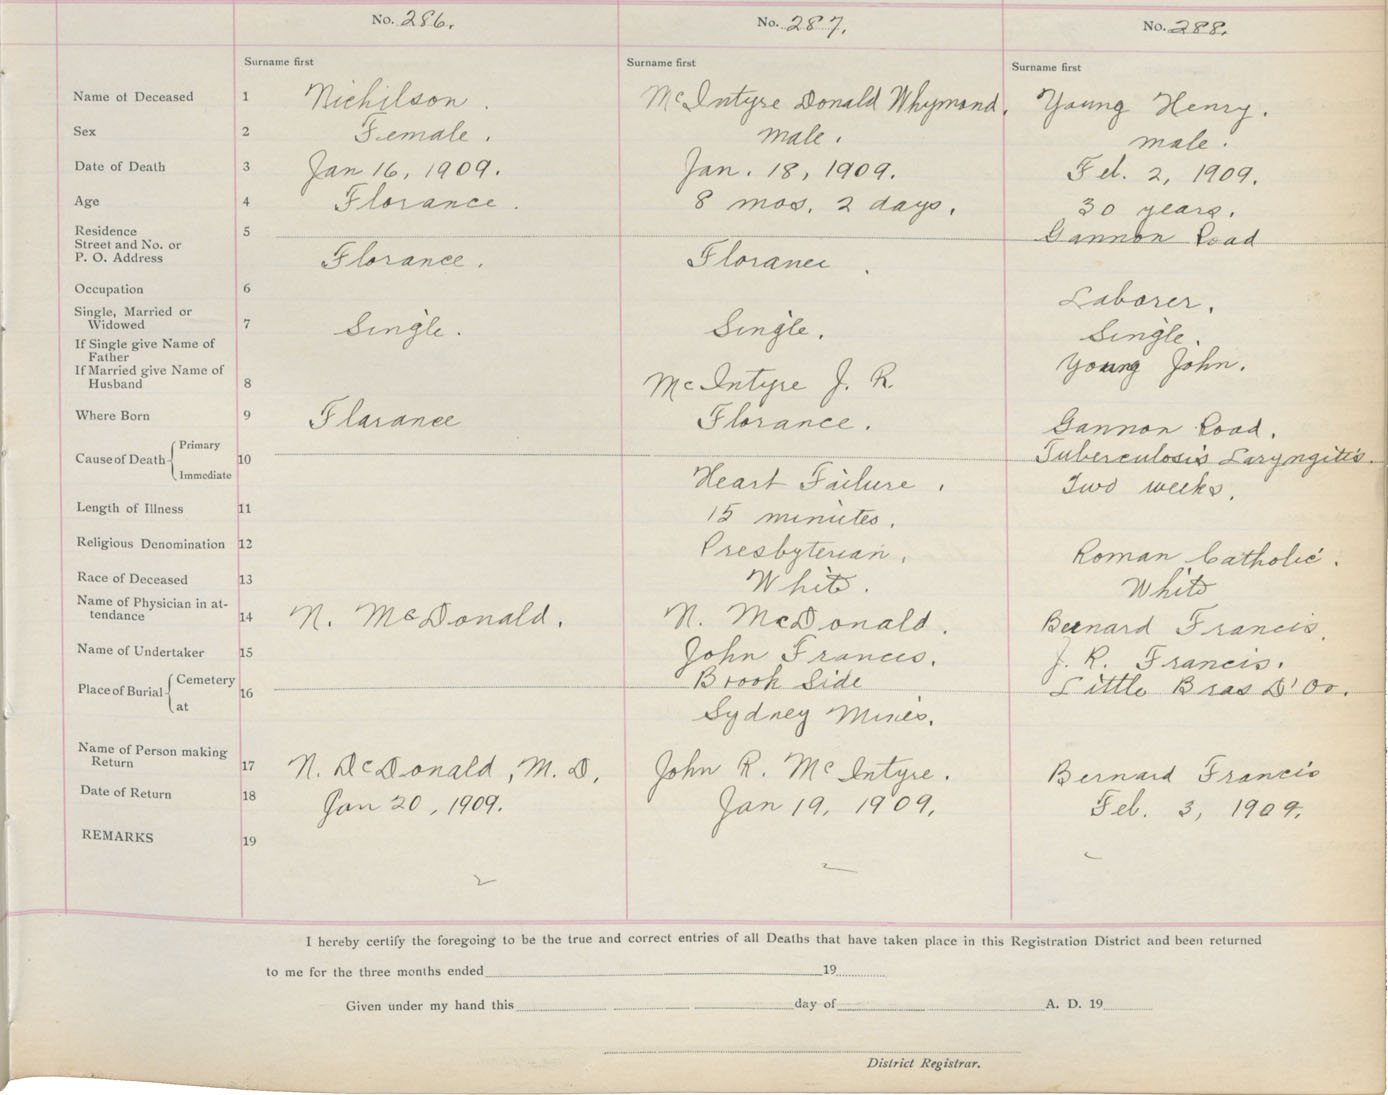 No. 286. No. 287. No. 288.
Surname first Surname first Surname first
Name of Deceased 1 Nichilson. McIntyre Donald Whymond. Young Henry.
Sex 2 Female. male. male.
Date of Death 3 Jan 16, 1909. Jan. 18, 1909. Feb. 2, 1909.
Age 4 Florance. 8 mos. 2 days. 30 years.
Residence 5 Gannon Road
Street and No. or
P. O. Address Florance. Florance.
Occupation 6 Laborer.
Single, Married or
Widowed 7 Single. Single. Single.
If Single give Name of
Father Young John.
If Married give Name of
Husband 8 McIntyre J. R.
Where Born 9 Florance Florance. Gannon Road.
Cause of Death Primary 10 Tuberculosis Laryngitis.
Immediate Heart Failure. Two weeks.
Length of Illness 11 15 minutes.
Religious Denomination 12 Presbyterian. Roman Catholic.
Race of Deceased 13 White. White
Name of Physician in at-
tendance 14 N. McDonald. N. McDonald. Bernard Francis.
Name of Undertaker 15 John Francis. J. R. Francis.
Place of Burial Cemetery 16 Brook Side Little Bras D'Or.
at Sydney Mines.
Name of Person making
Return 17 N. DcDonald, M. D. John R. McIntyre. Bernard Francis
Date of Return 18 Jan 20, 1909. Jan 19, 1909. Feb. 3, 1909.
REMARKS 19
I hereby certify the foregoing to be the true and correct entries of all Deaths that have taken place in this Registration District and been returned
to me for the three months ended 19
Given under my hand this day of A. D. 19
District Registrar.